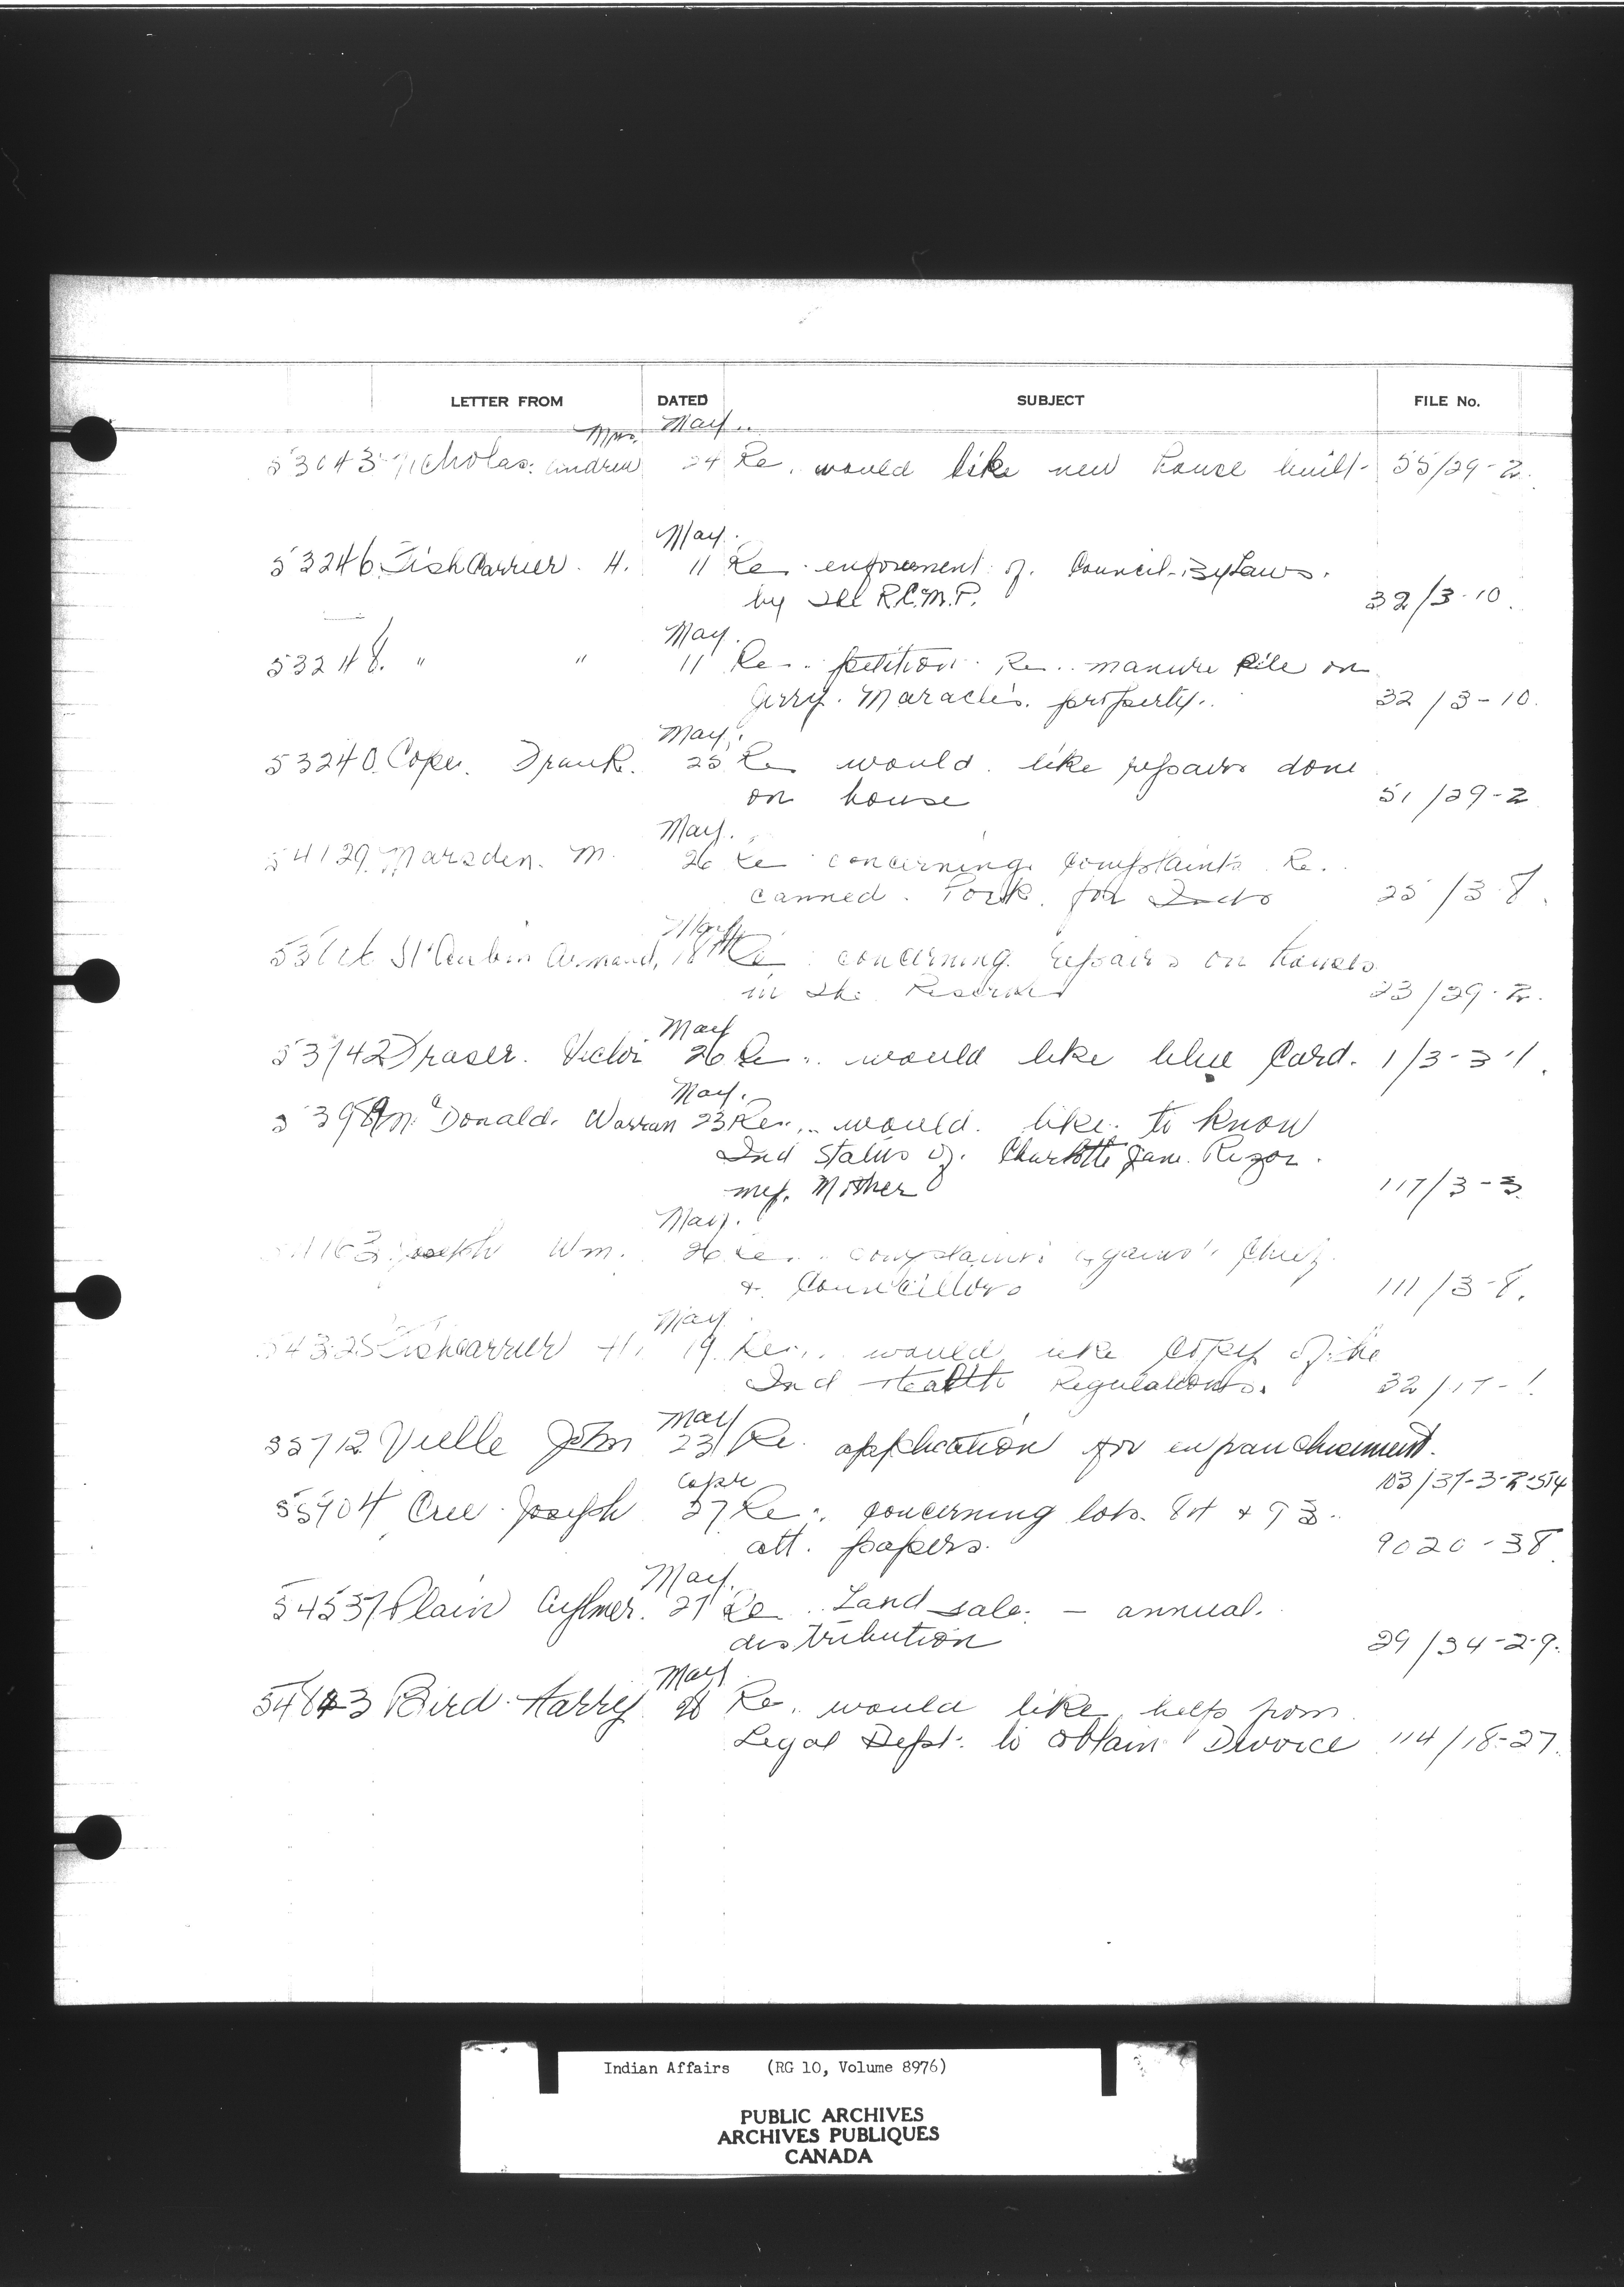 LETTER FROM DATED SUBJECT FILE No.
Mrs. May
53043 Nicholas. Andrew 24 Re. would like new house built 55/29-2.
May.
53246 Fish Carrier. H. 11 Re. enforcement of. Council-By Laws.
by the R.C.M.P. 32/3-10.
May.
53248. " " 11 Re.. petition. Re.. manure Pile on
Jerry. Maracle's. property.. 32/3-10.
May.
53240. Coper. Frank. 25 Re would. like repairs done
on house 51/29-2
May.
54129. Marsden. M. 26 Re concerning. complaints. Re.
canned. Pork. for 25/3-8.
May
St Aubin Armand, 18th Re concerning. repairs on houses
in the Reserve 23/29-2.
May
53742 Fraser. Victor 26 Re.. would like blue Card. 1/3-3-1.
May.
Mc Donald. Warran 23 Re... would. like. to know
Ind Status of. Charlotte Jane. Rezor.
my. Mother 117/3-3.
May.
Joseph Wm. 26 Re.. complaints against Chief
+ Councillors 111/3-8.
May
54325 Fish Carrier H. 19. Re... would like copy of the
Ind Health Regulations. 32/17-1.
May
55712 Vielle John 23 Re. application for enfranchisement.
103/37-3-2-514
Copr
55904 Cree. Joseph 27 Re.. concerning lots. 84 + 93.
att. papers. 9020-38
May.
54537 Plain Aylmer. 27 Re.. Land sale. - annual.
distribution 29/34-2-9.
May
54843 Bird. Harry 28 Re. would like help from
Legal Dept. to obtain Divorce 114/18-27.
Indian Affairs (RG 10, Volume 8976)
PUBLIC ARCHIVES
ARCHIVES PUBLIQUES
CANADA